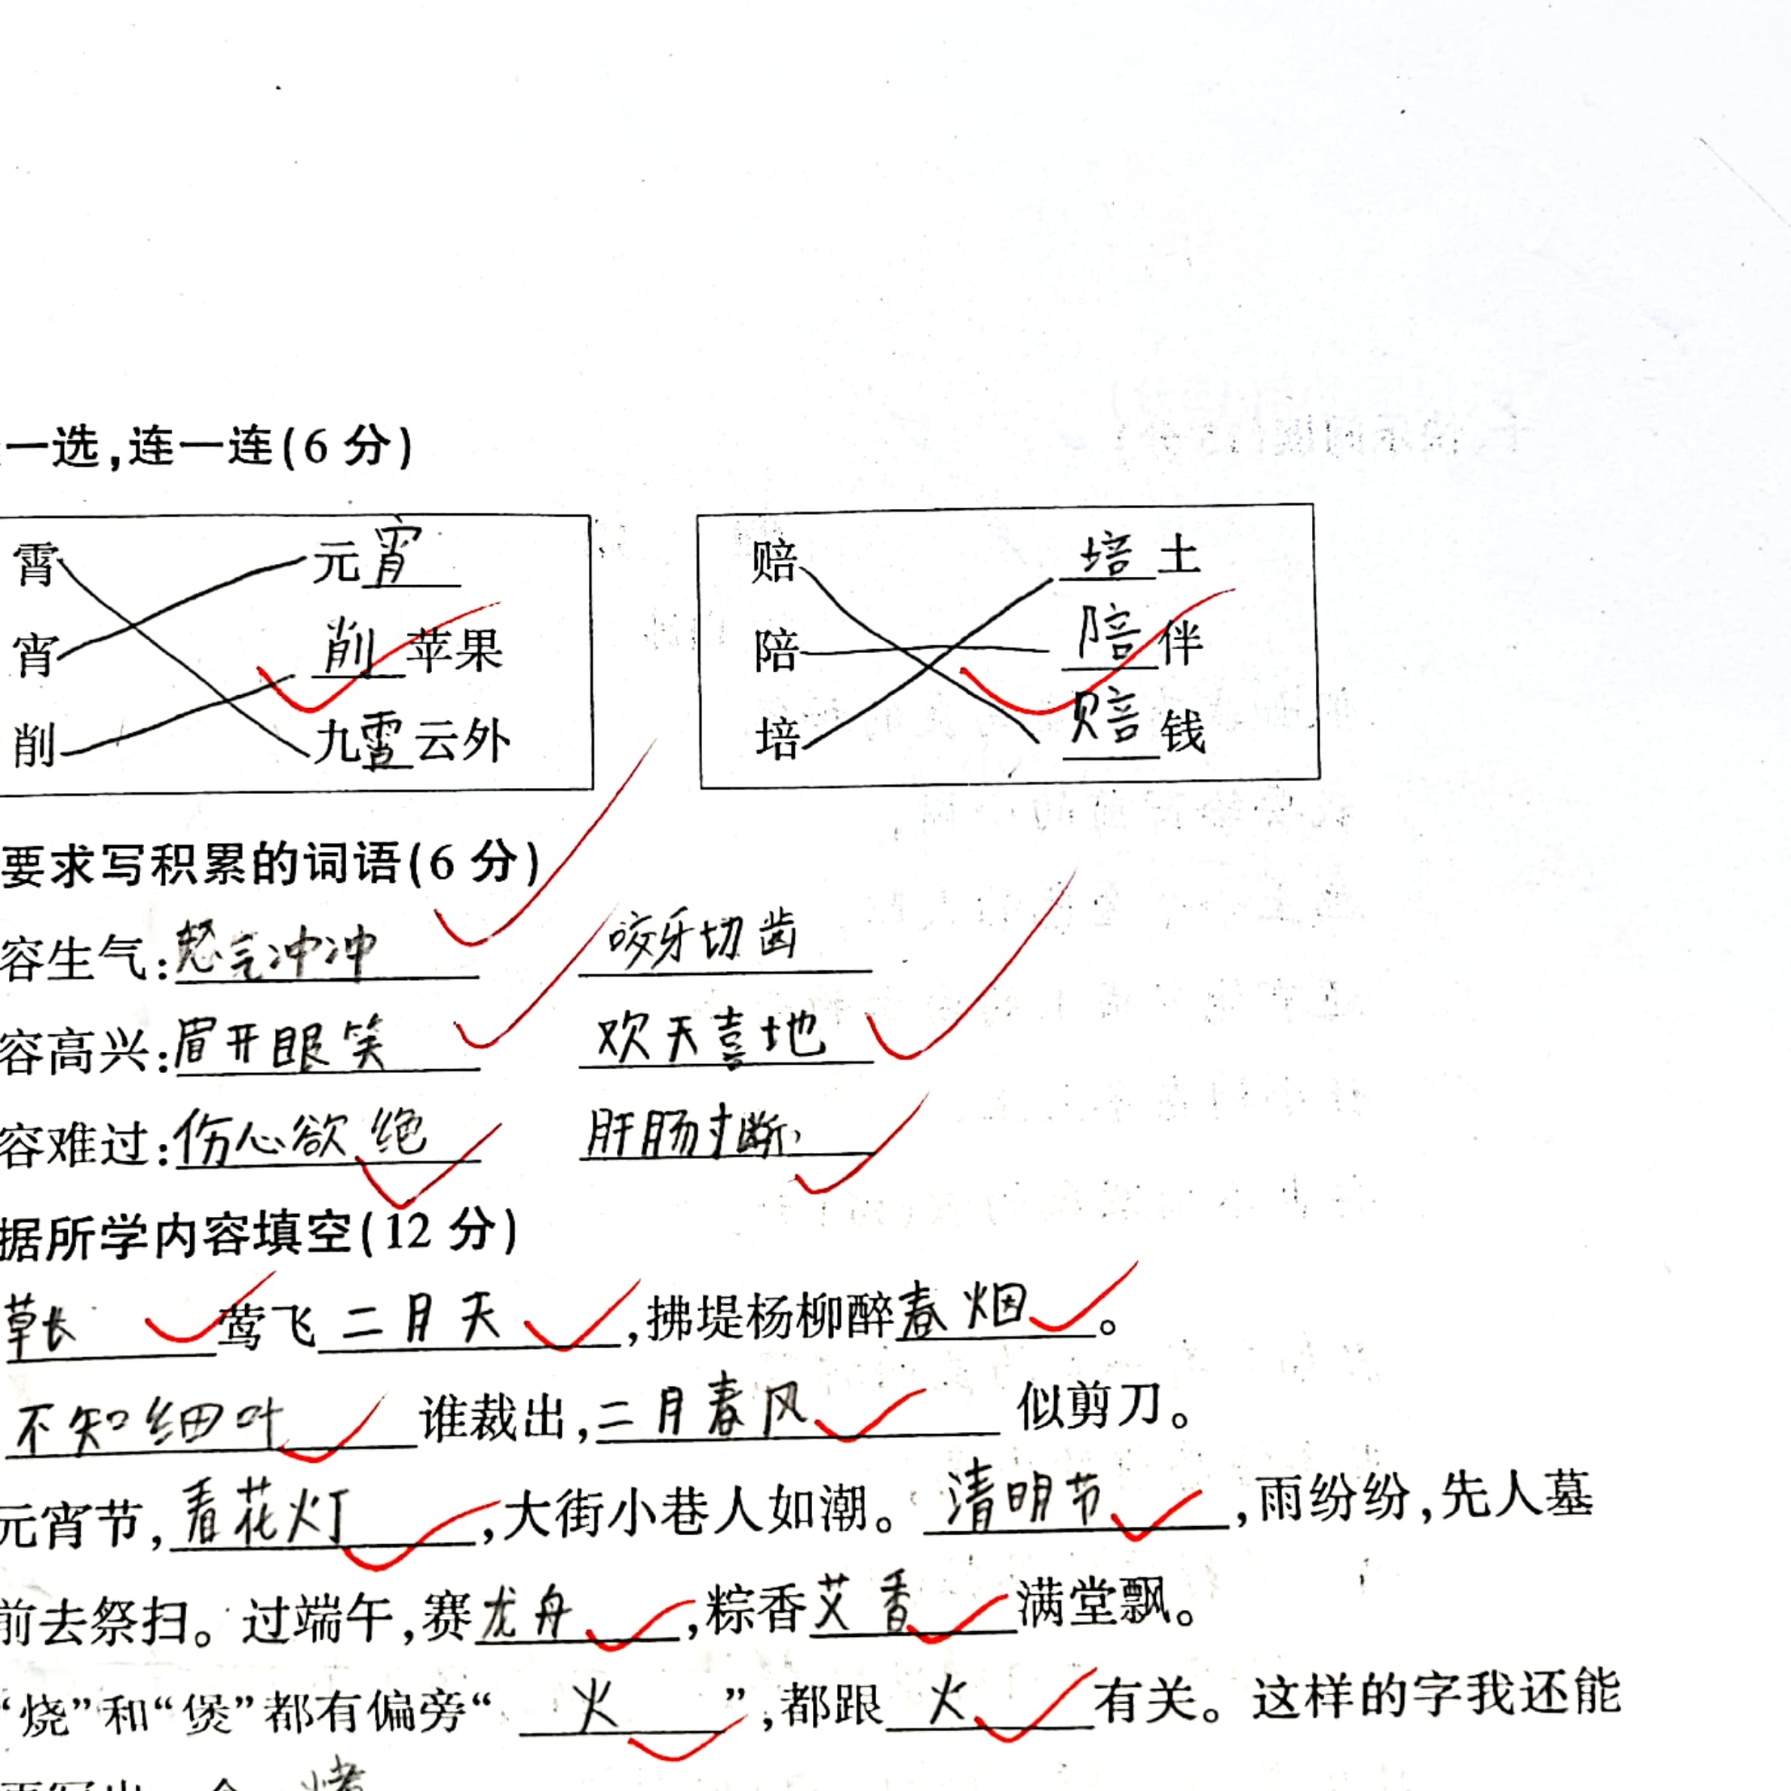 一选,连一连(6分)
霄 元宵
宵 削苹果
削 九霄云外
赔 培土
陪 陪伴
培 赔钱
要求写积累的词语(6分)
容生气:怒气冲冲 咬牙切齿
容高兴:眉开眼笑 欢天喜地
容难过:伤心欲绝 肝肠寸断
据所学内容填空(12分)
草长莺飞二月天,拂堤杨柳醉春烟。
不知细叶谁裁出,二月春风似剪刀。
元宵节,看花灯,大街小巷人如潮。清明节,雨纷纷,先人墓
前去祭扫。过端午,赛龙舟,粽香艾香满堂飘。
“烧”和“煲”都有偏旁“火”,都跟火有关。这样的字我还能